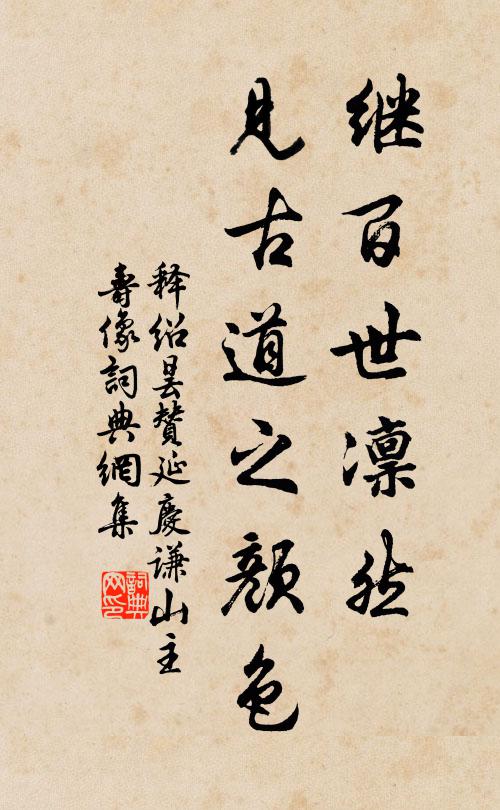 继百世凛然
见古道之颜色
释绍昙赞延庆谦山主
寿像词典網集
詞典网印